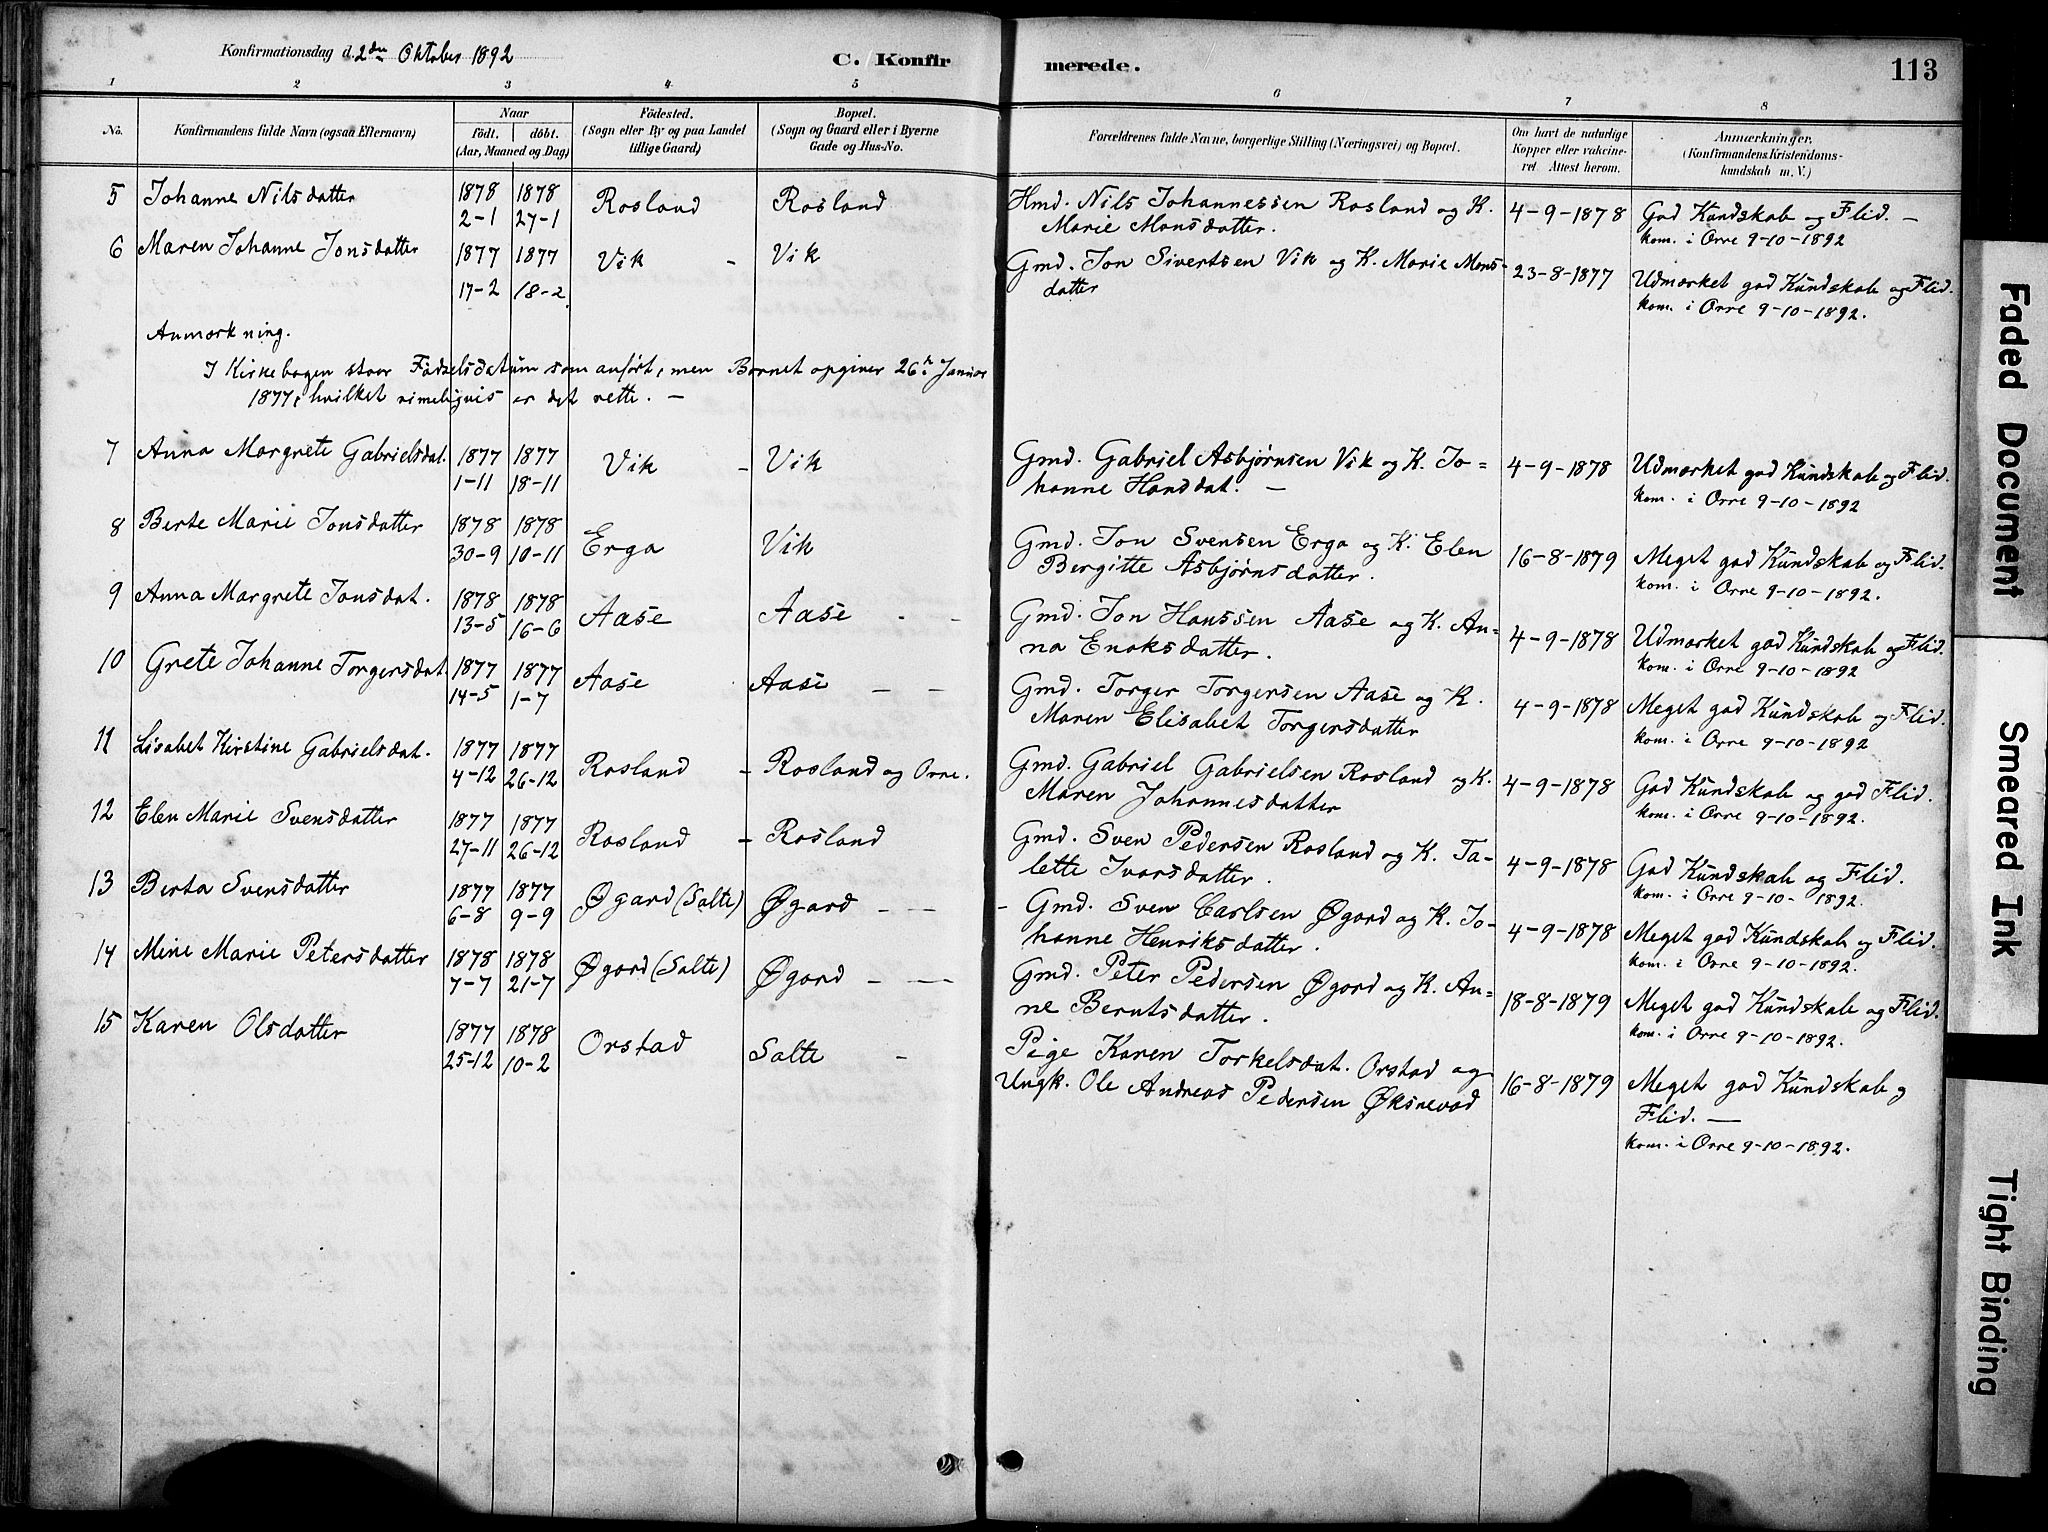 Konfirmationsdag d. 2den Oktober 1892
C. Konfir merede.
113
1 2 3 4 5 6 7 8
No. Konfirmandens fulde Navn (ogsaa Efternavn) Naar födt. döbt. (Aar, Maaned og Dag) Födested. (Sogn eller By og paa Landet tillige Gaard) Bopæl. (Sogn og Gaard eller i Byerne Gade og Hus-No. Forældrenes fulde Navne, borgerlige Stilling (Næringsvei) og Bopæl. Om havt de naturlige Kopper eller vakcineret. Attest herom. Anmærkninger. (Konfirmandens Kristendomskundskab m. V.)
5 Johanne Nilsdatter 1878 2-1 1878 27-1 Rosland Rosland Hmd. Nils Johannessen Rosland og K. 4-9-1878 God Kundskab og Flid. —
Marie Monsdatter. kom. i Orre 9-10-1892
6 Maren Johanne Jonsdatter 1877 17-2 1877 18-2 Vik - Vik Gmd. Jon Sivertsen Vik og K. Marie Mons- 23-8-1877 Udmærket god Kundskab og Flid.
datter kom. i Orre 9-10-1892.
Anmærkning.
I Kirkebogen staar Fødselsdatum som anført, men Barnet opgiver 26de Januar
1877, hvilket rimeligvis er det rette. —
7 Anna Margrete Gabrielsdat. 1877 1-11 1877 18-11 Vik - Vik Gmd. Gabriel Asbjørnsen Vik og K. Jo= 4-9-1878 Udmærket god Kundskab og Flid.
hanne Hansdat. — kom. i Orre 9-10-1892
8 Berte Marie Jonsdatter 1878 30-9 1878 10-11 Erga Vik Gmd. Jon Svensen Erga og K. Elen 16-8-1879 Meget god Kundskab og Flid.
Bergitte Asbjørnsdatter. kom. i Orre 9-10-1892.
9 Anna Margrete Jonsdat. 1878 13-5 1878 16-6 Aase Aase - - Gmd. Jon Hanssen Aase og K. An= 4-9-1878 Udmærket god Kundskab og Flid.
na Enoksdatter. kom. i Orre 9-10-1892
10 Grete Johanne Torgersdat. 1877 14-5 1877 1-7 Aase Aase — — Gmd. Torger Torgersen Aase og K. 4-9-1878 Meget god Kundskab og Flid.
Maren Elisabet Torgersdatter kom. i Orre 9-10-1892
11 Lisabet Kirstine Gabrielsdat. 1877 4-12 1877 26-12 Rosland - Rosland og Orre. Gmd. Gabriel Gabrielsen Rosland og K. 4-9-1878 God Kundskab og god Flid.
Maren Johannesdatter kom. i Orre 9-10-1892.
12 Elen Marie Svensdatter 1877 27-11 1877 26-12 Rosland - Rosland Gmd. Sven Pedersen Rosland og K. Ta- 4-9-1878 God Kundskab og Flid.
lette Ivarsdatter. kom. i Orre 9-10-1892.
13 Berta Svensdatter 1877 6-8 1877 9-9 Øgard (Salte) Øgard — — - Gmd. Sven Carlsen Øgard og K. Jo- 4-9-1878 Meget god Kundskab og Flid.
hanne Henriksdatter. kom. i Orre 9-10-1892.
14 Mine Marie Petersdatter 1878 7-7 1878 21-7 Øgard (Salte) Øgard — — Gmd. Peter Pedersen Øgard og K. An= 18-8-1879 Meget god Kundskab og Flid.
ne Berntsdatter. kom. i Orre 9-10-1892.
15 Karen Olsdatter 1877 25-12 1878 10-2 Orstad Salte - Pige Karen Torkelsdat. Orstad og
Ungk. Ole Andreas Pedersen Øksnevad 16-8-1879 Meget god Kundskab og
Flid. —
kom. i Orre 9-10-1892.
Faded Document
Smeared Ink
Tight Binding